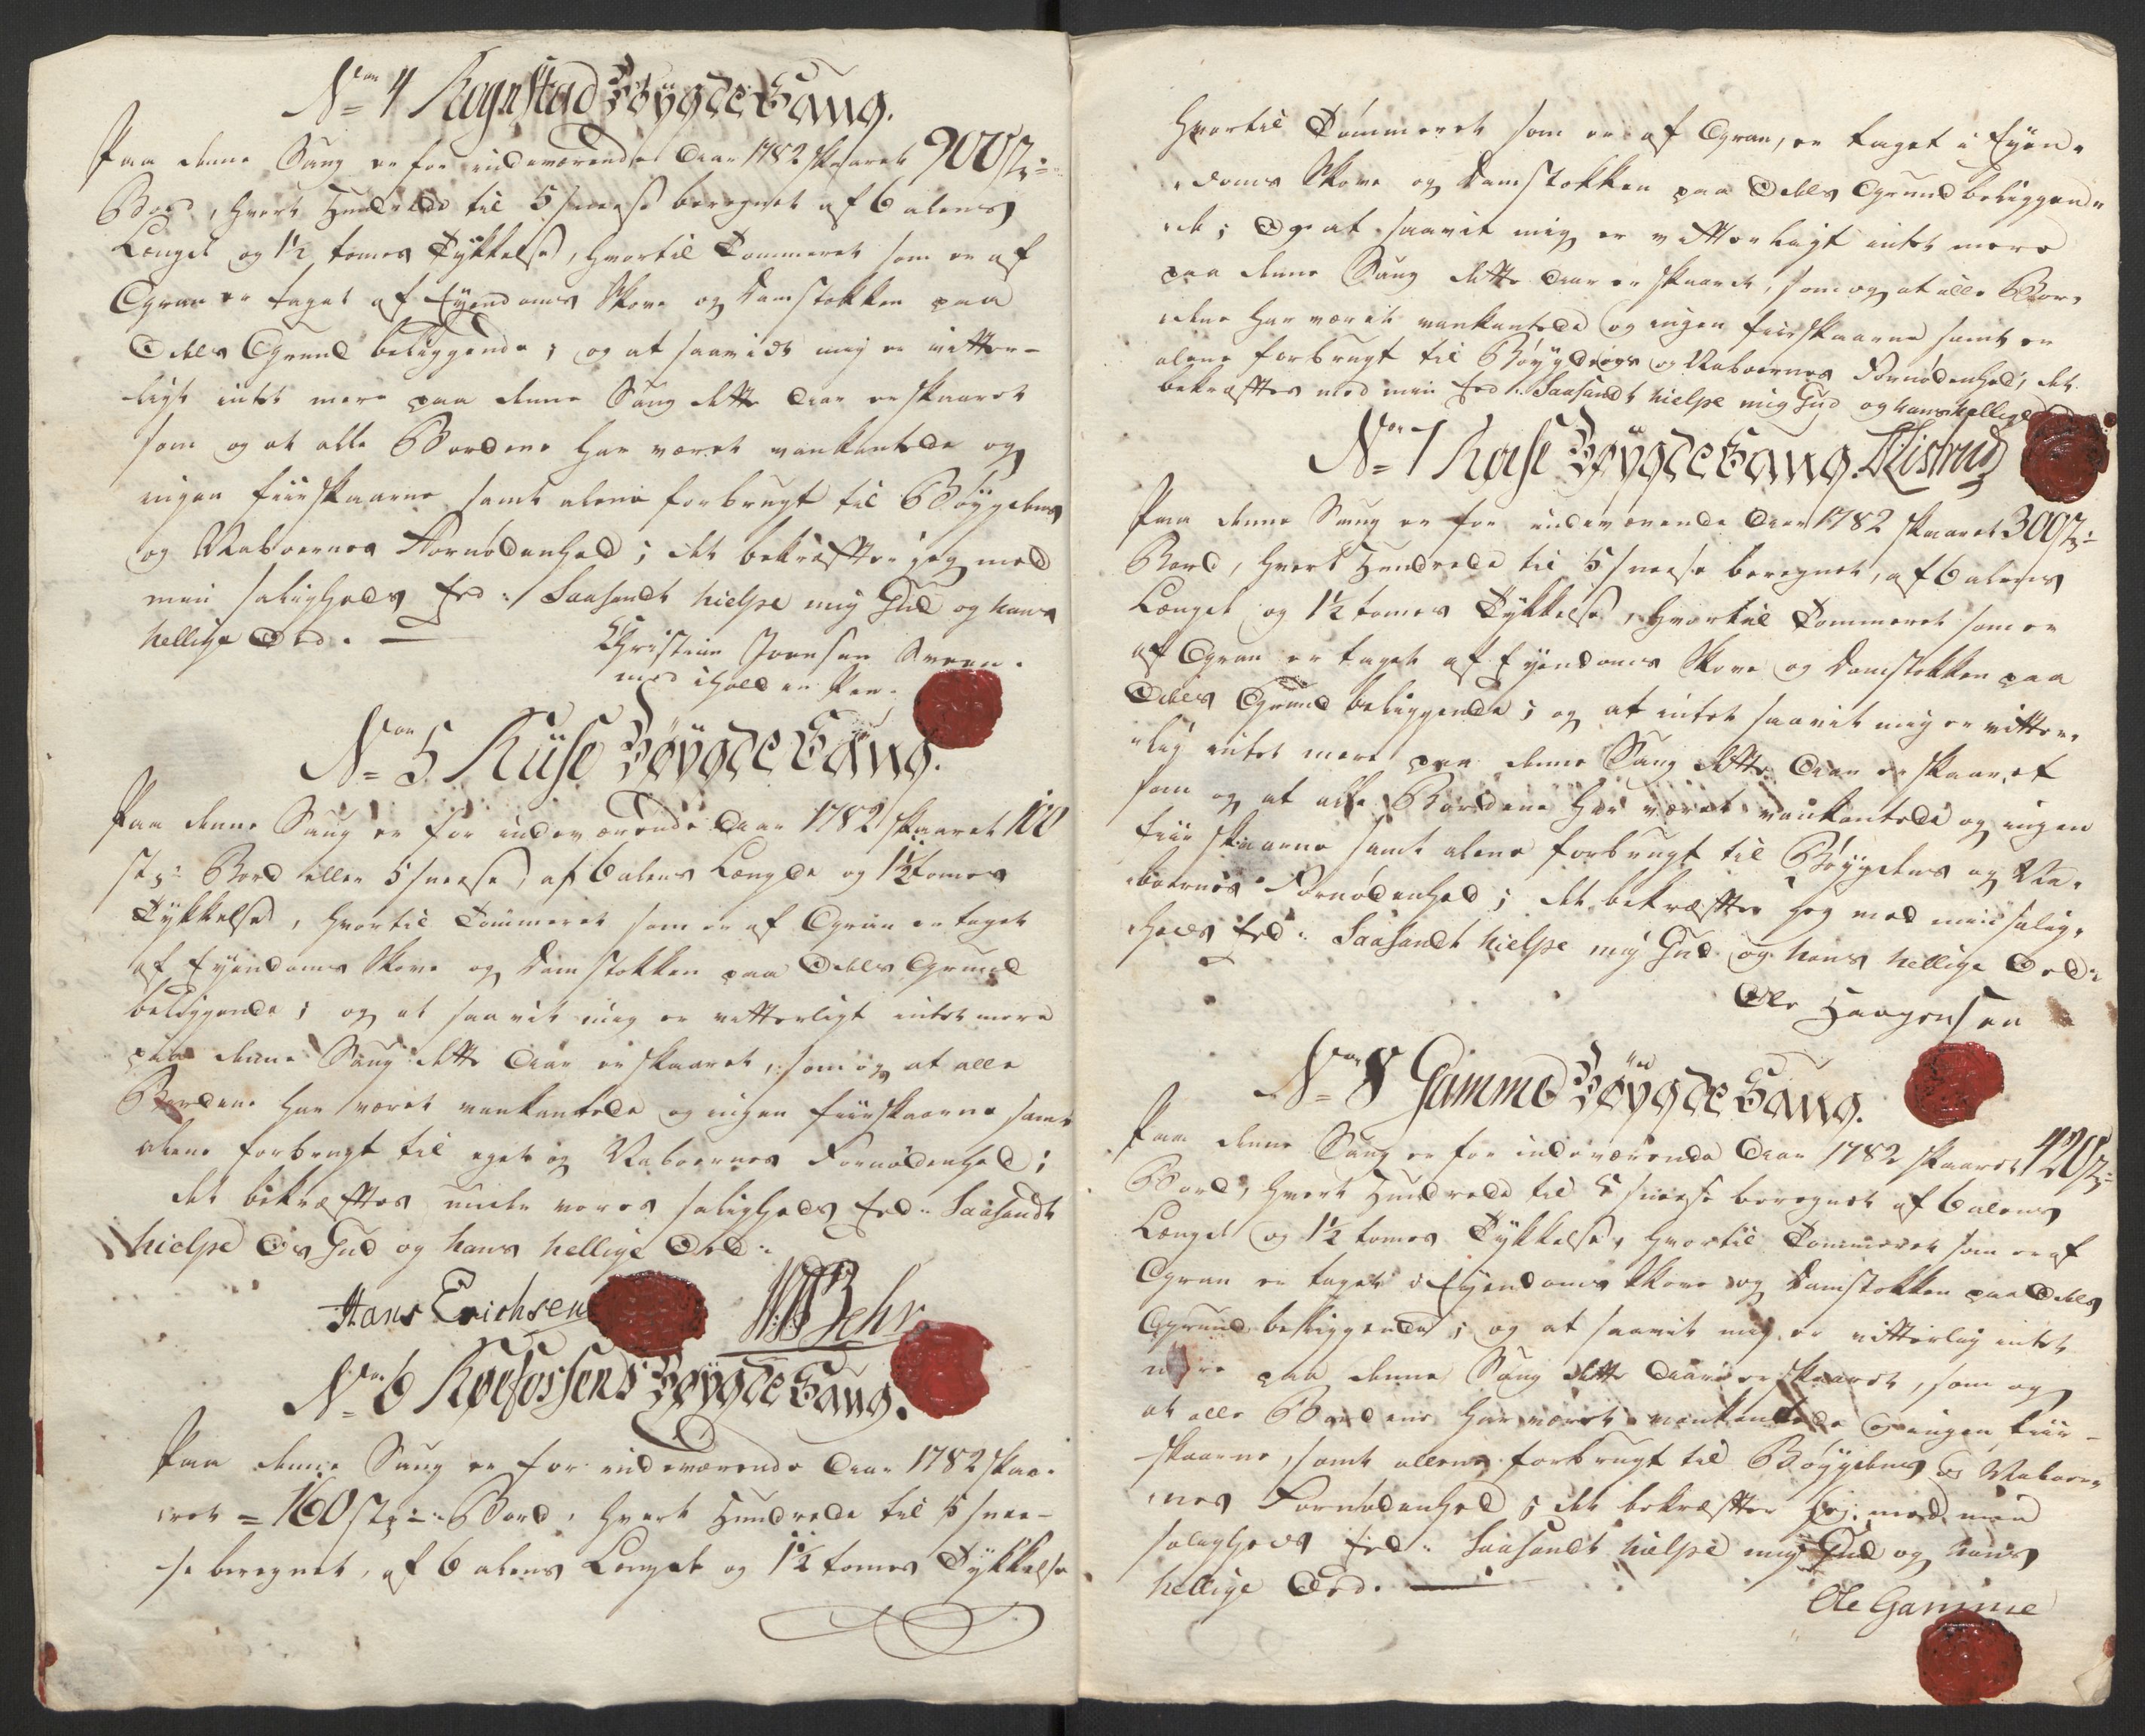 No 4 Rognstad Bøygde Saug.
Paa denne Saug er for indeværende Aar 1782 skaaret 900 stz:
Bord, hvert Hundrede til 5 sneese beregnet af 6 alens
Længde og 1½ tomes Tykkelse, hvortil Tømmeret som er af
Gran er taget af Eyendoms Skove og Damstokken paa
Odels Grund beliggende; og at saavidt mig er vitter-
ligt intet mere paa denne Saug dette Aar er skaaret
som og at alle Bordene har været vankantede og
ingen fiirskaarne samt alene forbrugt til Bøygdens
og Naboernes Fornødenhed; det bekræfter jeg med
min saligheds Eed. Saasandt hielpe mig Gud og hans
hellige Ord. —
Christian Joensen Sveen.
med iholden Pen.
No 5 Kiise Bøygde Saug.
Paa denne Saug er for indeværende Aar 1782 skaaret 100
stz: Bord eller 5 sneese, af 6 alens Længde og 1½ tomes
Tykkelse, hvortil Tømmeret som er af Gran er taget
af Eyendoms Skove og Damstokken paa Odels Grund
beliggende; og at saavit mig er vitterligt intet mere
paa denne Saug dette Aar er skaaret, som og at alle
Bordene har været vankantede og ingen fiirskaarne samt
alene forbrugt til eget og Naboernes Fornødenhed;
det bekræftes under vores saligheds Eed. Saasandt
hielpe Os Gud og hans hellige Ord.
Hans Erichsen Behr
No 6 Kolfossens Bøygde Saug.
Paa denne Saug er for indeværende Aar 1782 skaa-
ret = 160 stz: Bord, hvert Hundrede til 5 snee-
se beregnet, af 6 alens Længde og 1½ tomes Tykkelse
Hvortil Tømmeret som er af Gran, er taget i Eyen-
doms Skove og Damstokken paa Odels Grund beliggen-
de; Og at saavit mig er vitterligt intet mere
paa denne Saug dette Aar er skaaret, som og at alle Bor-
dene har værit vankantede og ingen fiirskaarne samt er
alene forbrugt til Bøygdens og Naboernes Fornødenhed; det
bekræftes med min Eed. Saasandt hielpe mig Gud og hans hellige
No 7 Kolse Bøygde Saug. Listrud
Paa denne Saug er for indeværende Aar 1782 skaaret 300 stz:
Bord, hvert Hundrede til 5 sneese beregnet, af 6 alens
Længde og 1½ tomes Tykkelse, hvortil Tømmeret som er
af Gran er taget af Eyendoms Skove og Damstokken paa
Odels Grund beliggende; og at intet saavit mig er vitter-
lig intet mere paa denne Saug dette Aar er skaaret
som og at alle Bordene har været vankantede og ingen
fiirskaarne samt alene forbrugt til Bøygdens og Na-
boernes Fornødenhed; det bekræfter jeg med min salig-
heds Eed. Saasandt hielpe mig Gud og hans hellige Ord.
Ole Haagensen
No 8 Gamme Bøygde Saug.
Paa denne Saug er for indeværende Aar 1782 skaaret 420 stz:
Bord, hvert Hundrede til 5 sneese beregnet af 6 alens
Længde og 1½ tomes Tykkelse, hvortil Tømmeret som er af
Gran er taget i Eyendoms skove og Damstokken paa Odels
Grund beliggende; og at saavit mig er vitterlig intet
mere paa denne Saug dette Aar er skaaret, som og
at alle Bordene har været vankantede og ingen fiir-
skaarne, samt allene forbrugt til Bøygdens og Naboer-
nes Fornødenhed; det bekræfter jeg med min
saligheds Eed. Saasandt hielpe mig Gud og hans
hellige Ord. —
Ole Gamme